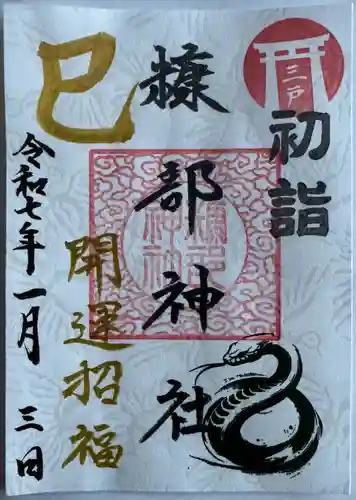 三戸
初詣
糠部神社
巳
開運招福
令和七年一月三日